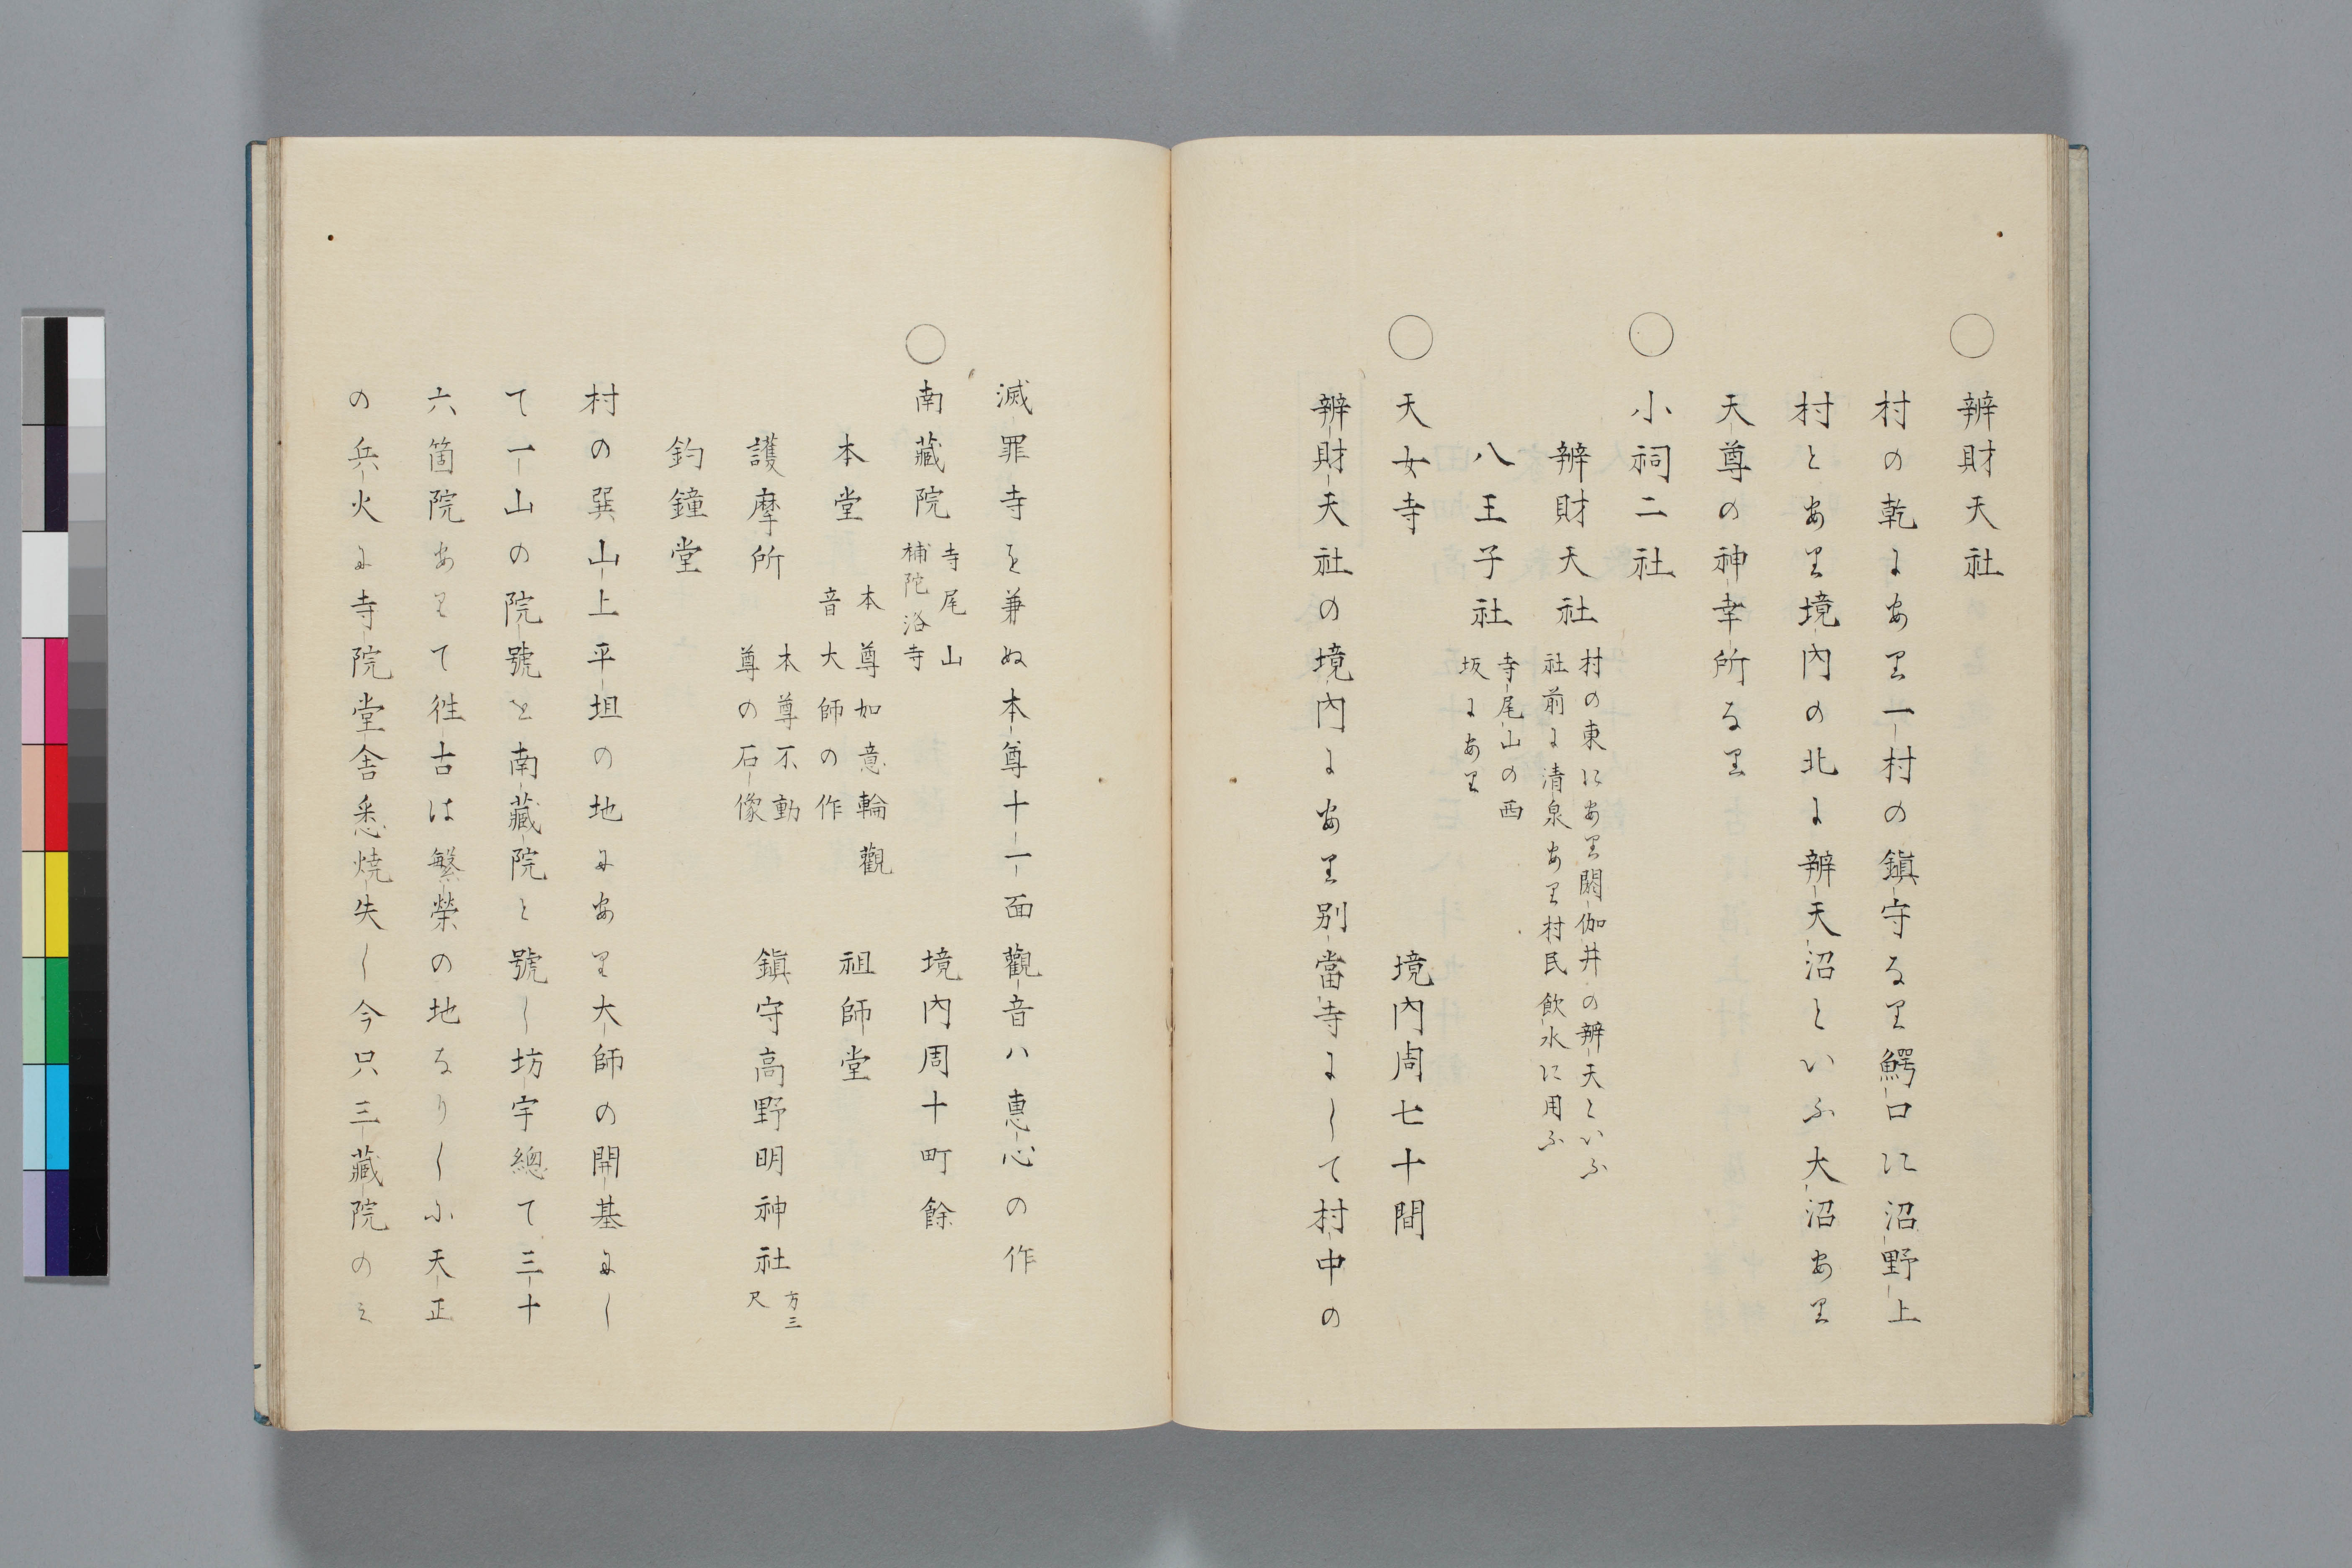 ○辨財天社
村の乾にあり一村の鎮守なり鰐口に沼野上
村とあり境内の北に辨天沼といふ大沼あり
天尊の神幸所なり
○小祠二社
辨財天社
村の東にあり閼伽井の辨天といふ
社前に清泉あり村民飲水に用ふ
八王子社
寺尾山の西
坂にあり
○天女寺 境内周七十間
辨財天社の境内にあり別當寺にして村中の
滅罪寺を兼ぬ本尊十一面觀音ハ惠心の作
○南藏院
寺尾山
補陀洛寺
境内周十町餘
本堂
本尊如意輪觀
音大師の作
祖師堂
護摩所
本尊不動
尊の石像
鎮守高野明神社
方三
尺
釣鐘堂
村の巽山上平坦の地にあり大師の開基にし
て一山の院號を南藏院と號し坊宇總て三十
六箇院ありて徃古は繁榮の地なりしに天正
の兵火に寺院堂舎悉焼失し今只三藏院のミ